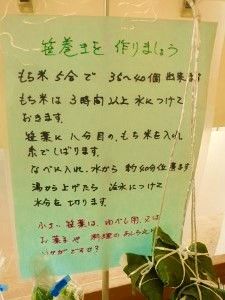 笹巻きを作りましょう
もち米5合で 36〜40個出来ます
もち米は3時間以上水につけて
おきます。
笹葉に八分目の、もち米を入れ
糸でしばります。
なべに入れ、水から 約40分位煮ます
湯から上げたら 冷水につけて
水分を切ります。
笹葉は、
お菓子や 料理のあしらえに
いかがですか?